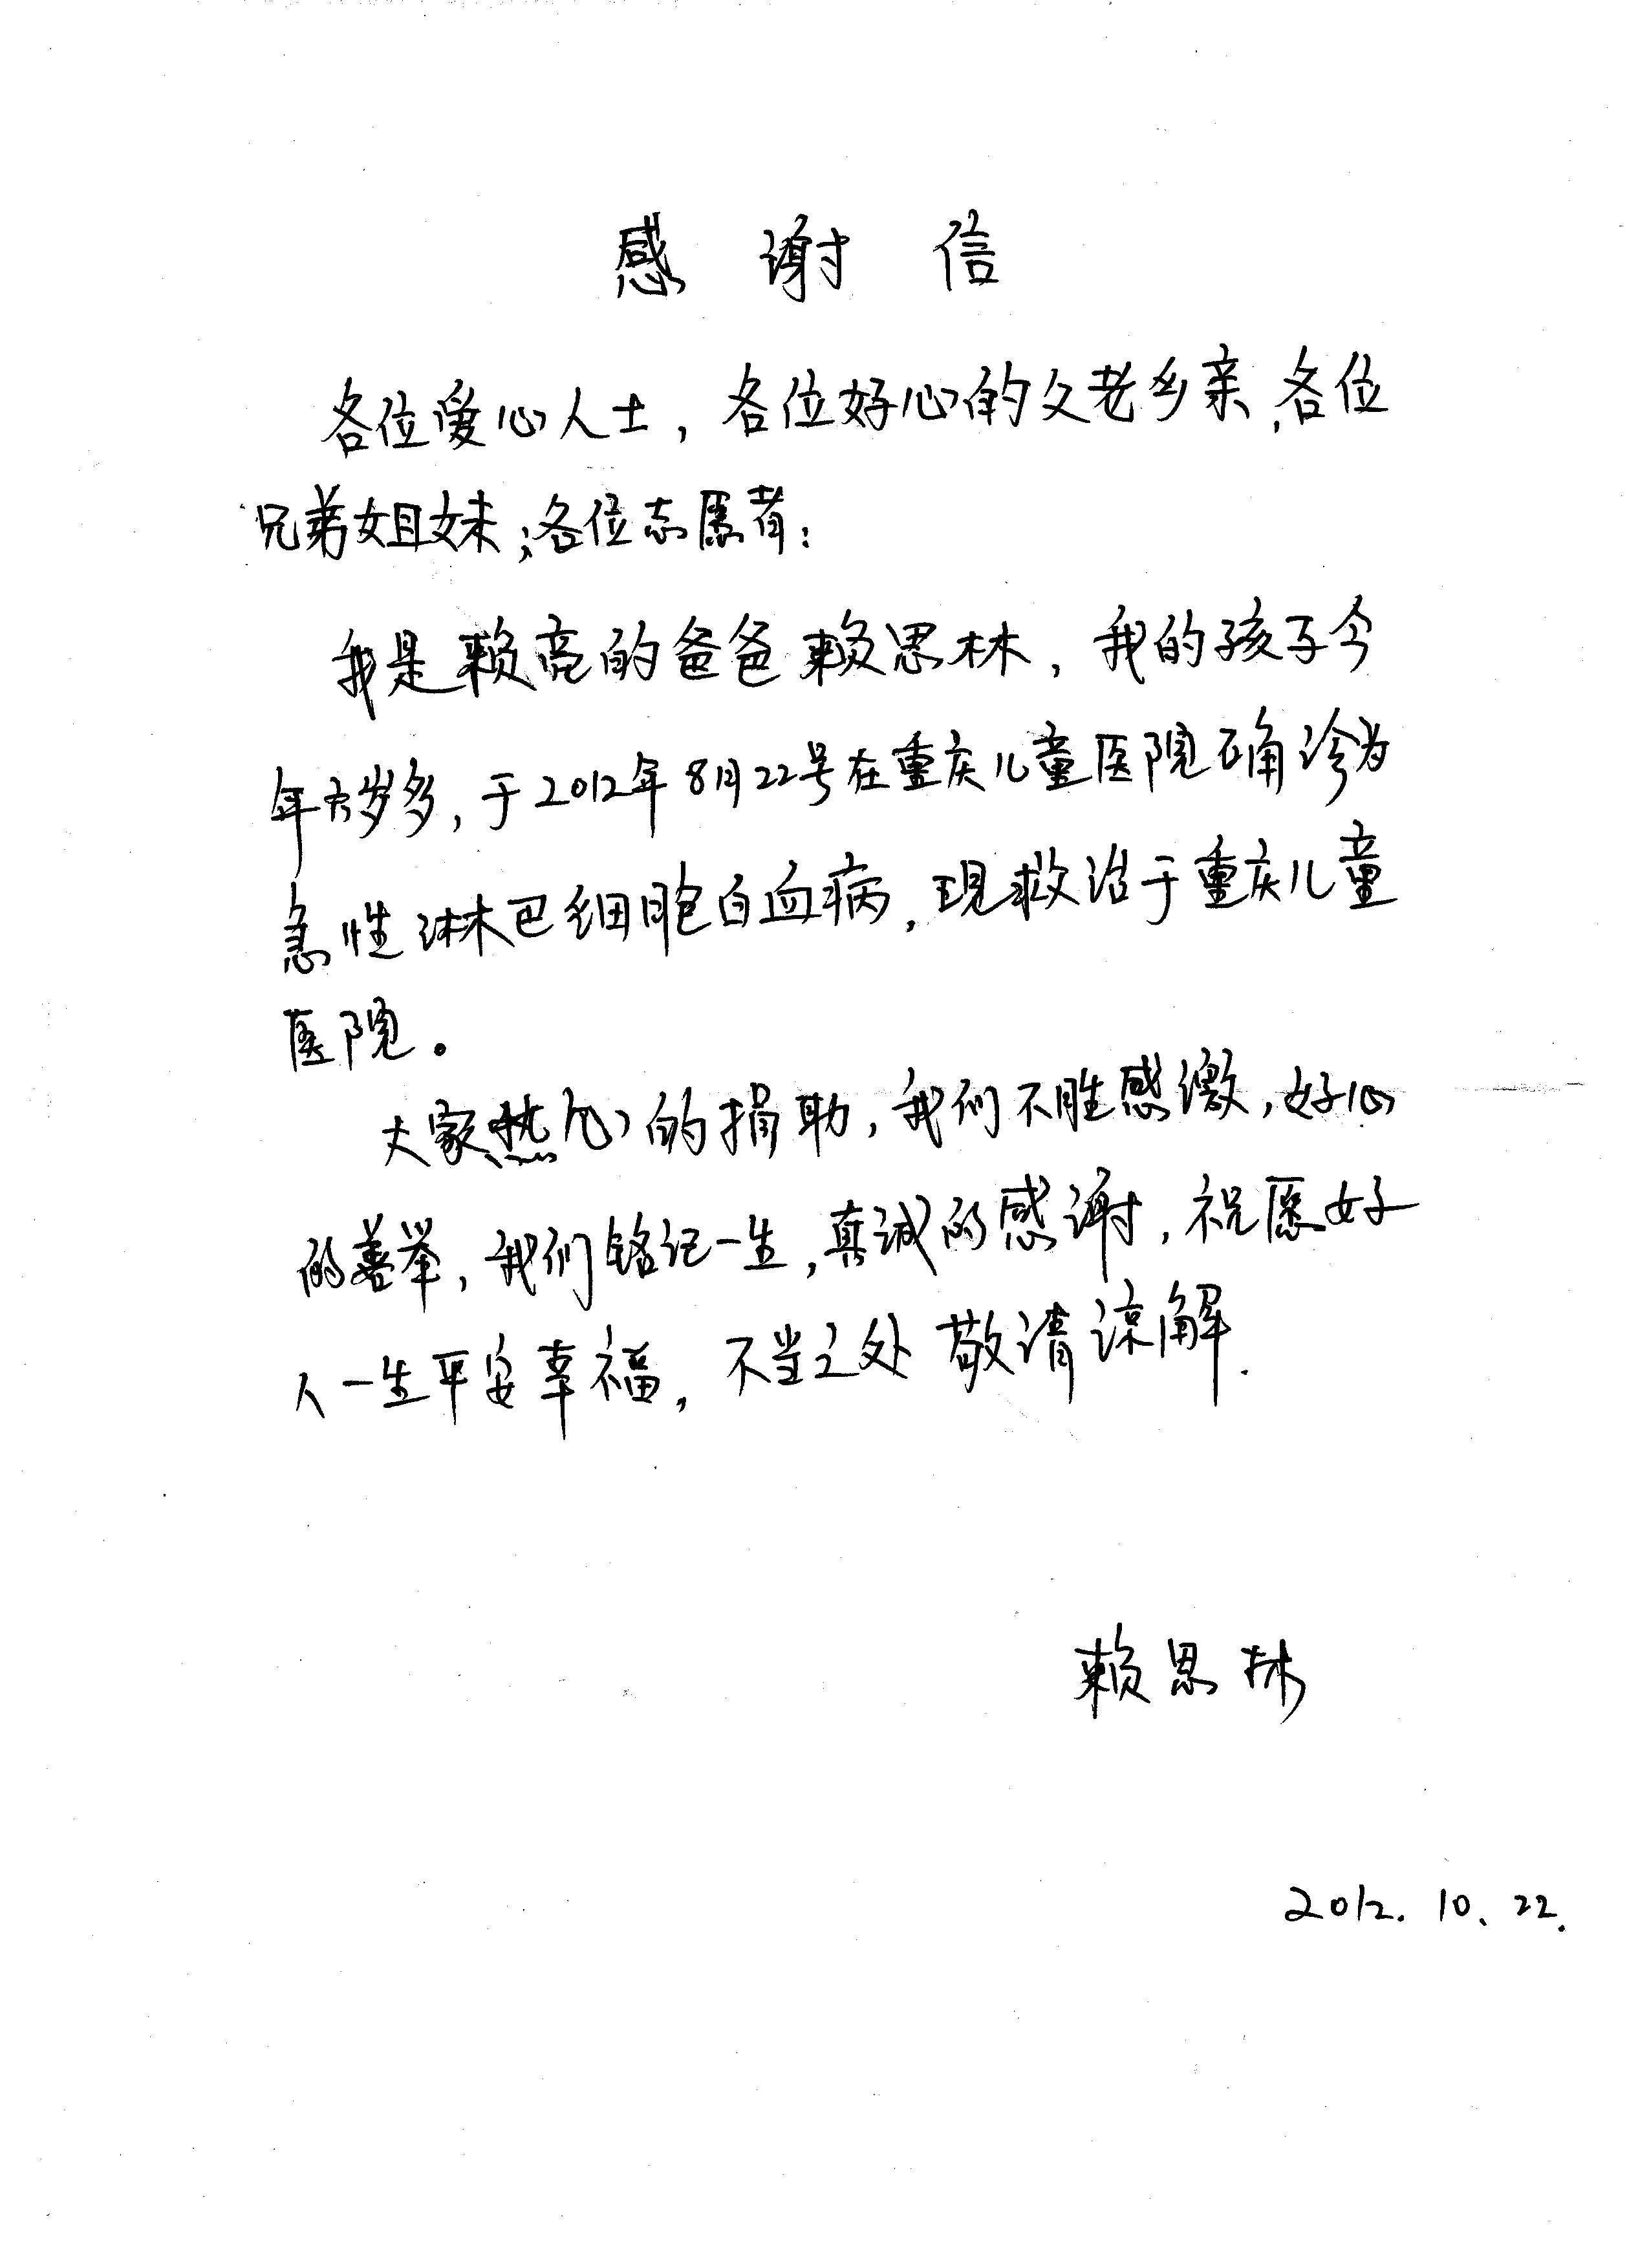 感谢信
各位爱心人士，各位好心的父老乡亲，各位
兄弟姐妹；各位志愿者：
我是赖亮的爸爸赖思林，我的孩子今
年六岁多，于2012年8月22号在重庆儿童医院确诊为
急性淋巴细胞白血病，现救治于重庆儿童
医院。
大家热心的捐助，我们不胜感激，好心
的善举，我们铭记一生，真诚的感谢，祝愿好
人一生平安幸福，不当之处敬请谅解.
赖思林
2012.10、22.